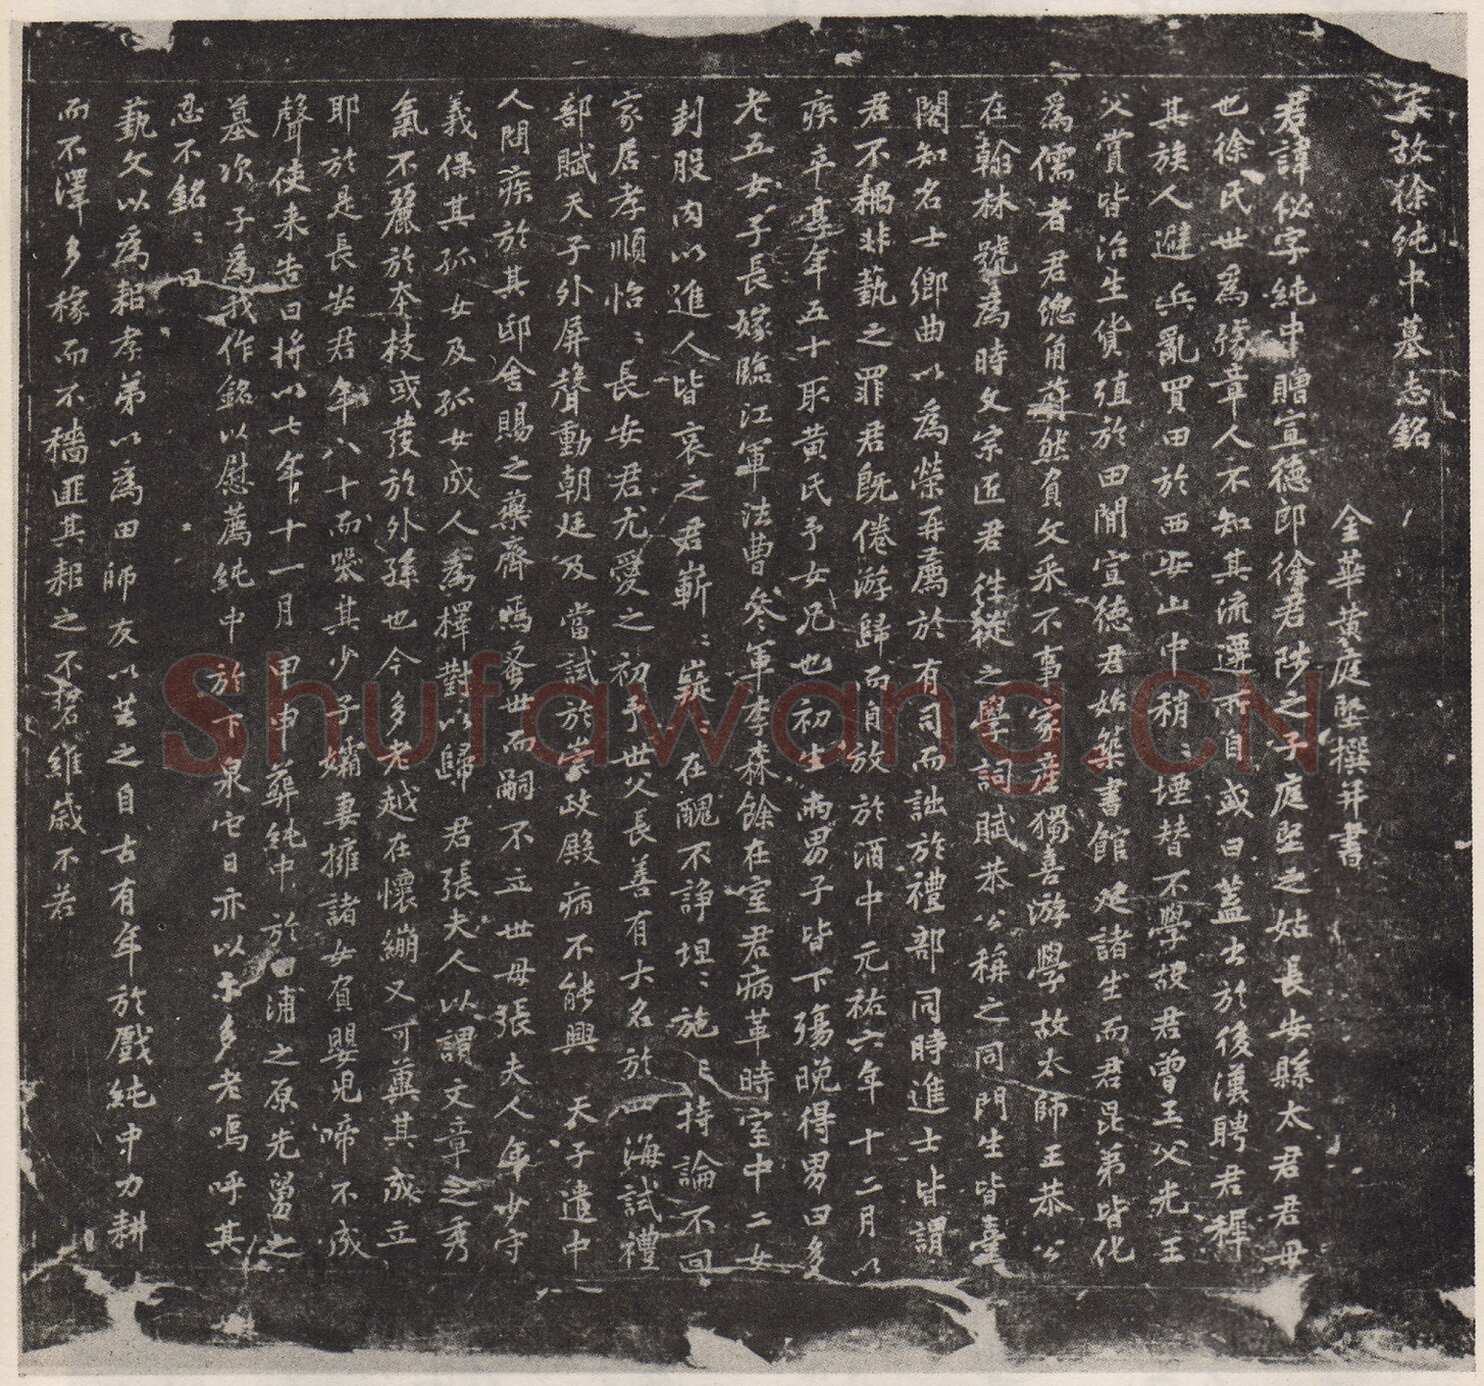 宋故徐純中墓志銘
金華黃庭堅撰并書
君諱佖字純中贈宣德郎徐君陟之子庭堅之姑長安縣太君君母
也徐氏世爲豫章人不知其流遷所自或曰蓋出於後漢聘君穉
其族人避兵亂買田於西安山中稍〻堙替不學故君曾王父先王
父賞皆治生貨殖於田閒宣德君始築書館延諸生而君昆弟皆化
爲儒者君總角蔚然負文采不事家產獨喜游學故太師王恭公
在翰林號爲時文宗匠君往從之學詞賦恭公稱之同門生皆臺
閣知名士鄉曲以爲榮再薦於有司而詘於禮部同時進士皆謂
君不耦非藝之罪君既倦游歸而自放於酒中元祐六年十二月以
疾卒享年五十取黃氏予女兄也初生兩男子皆下殤晚得男曰多
老五女子長嫁臨江軍法曹參軍李森餘在室君病革時室中二女
刲股肉以進人皆哀之君嶄〻嶷〻在醜不諍坦〻施〻持論不回
家居孝順怡〻長安君尤愛之初予世父長善有大名於四海試禮
部賦天子外屏聲動朝廷及當試於崇政殿病不能興 天子遣中
人問疾於其邸舍賜之藥齊焉蚤世而嗣不立世母張夫人年少守
義保其孤女及孤女成人爲擇對以歸君張夫人以謂文章之秀
氣不麗於本枝或發於外孫也今多老越在懷繃又可冀其成立
耶於是長安君年八十而哭其少子孀妻擁諸女負嬰兒啼不成
聲使来告曰將以七年十一月甲申葬純中於田浦之原先塋之
墓次子爲我作銘以慰薦純中於下泉它日亦以示多老嗚呼其
忍不銘〻曰
藝文以爲耜孝弟以爲田師友以芸之自古有年於戲純中力耕
而不澤多稼而不穡匪其耜之不君維歲不若